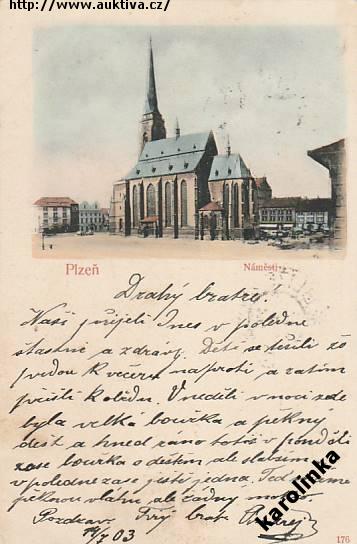 http://www.auktiva.cz/
Plzeň
Náměstí
Drahý bratře.
Naši přijeli dnes v poledne
šťastně a zdrávi. Děti se těšili že
jedou k večeru naproti a zatím
přišli k obědu. V neděli v noci zde
byla velká bouřka a pěkný
déšť a hned ráno totiž v pondělí
zase bouřka s deštěm ale slabším
v poledne zase ještě jedna. Teď máme
pěknou vláhu ale žádný
Pozdrav Tvůj bratr
14/7 03
176
karolinka